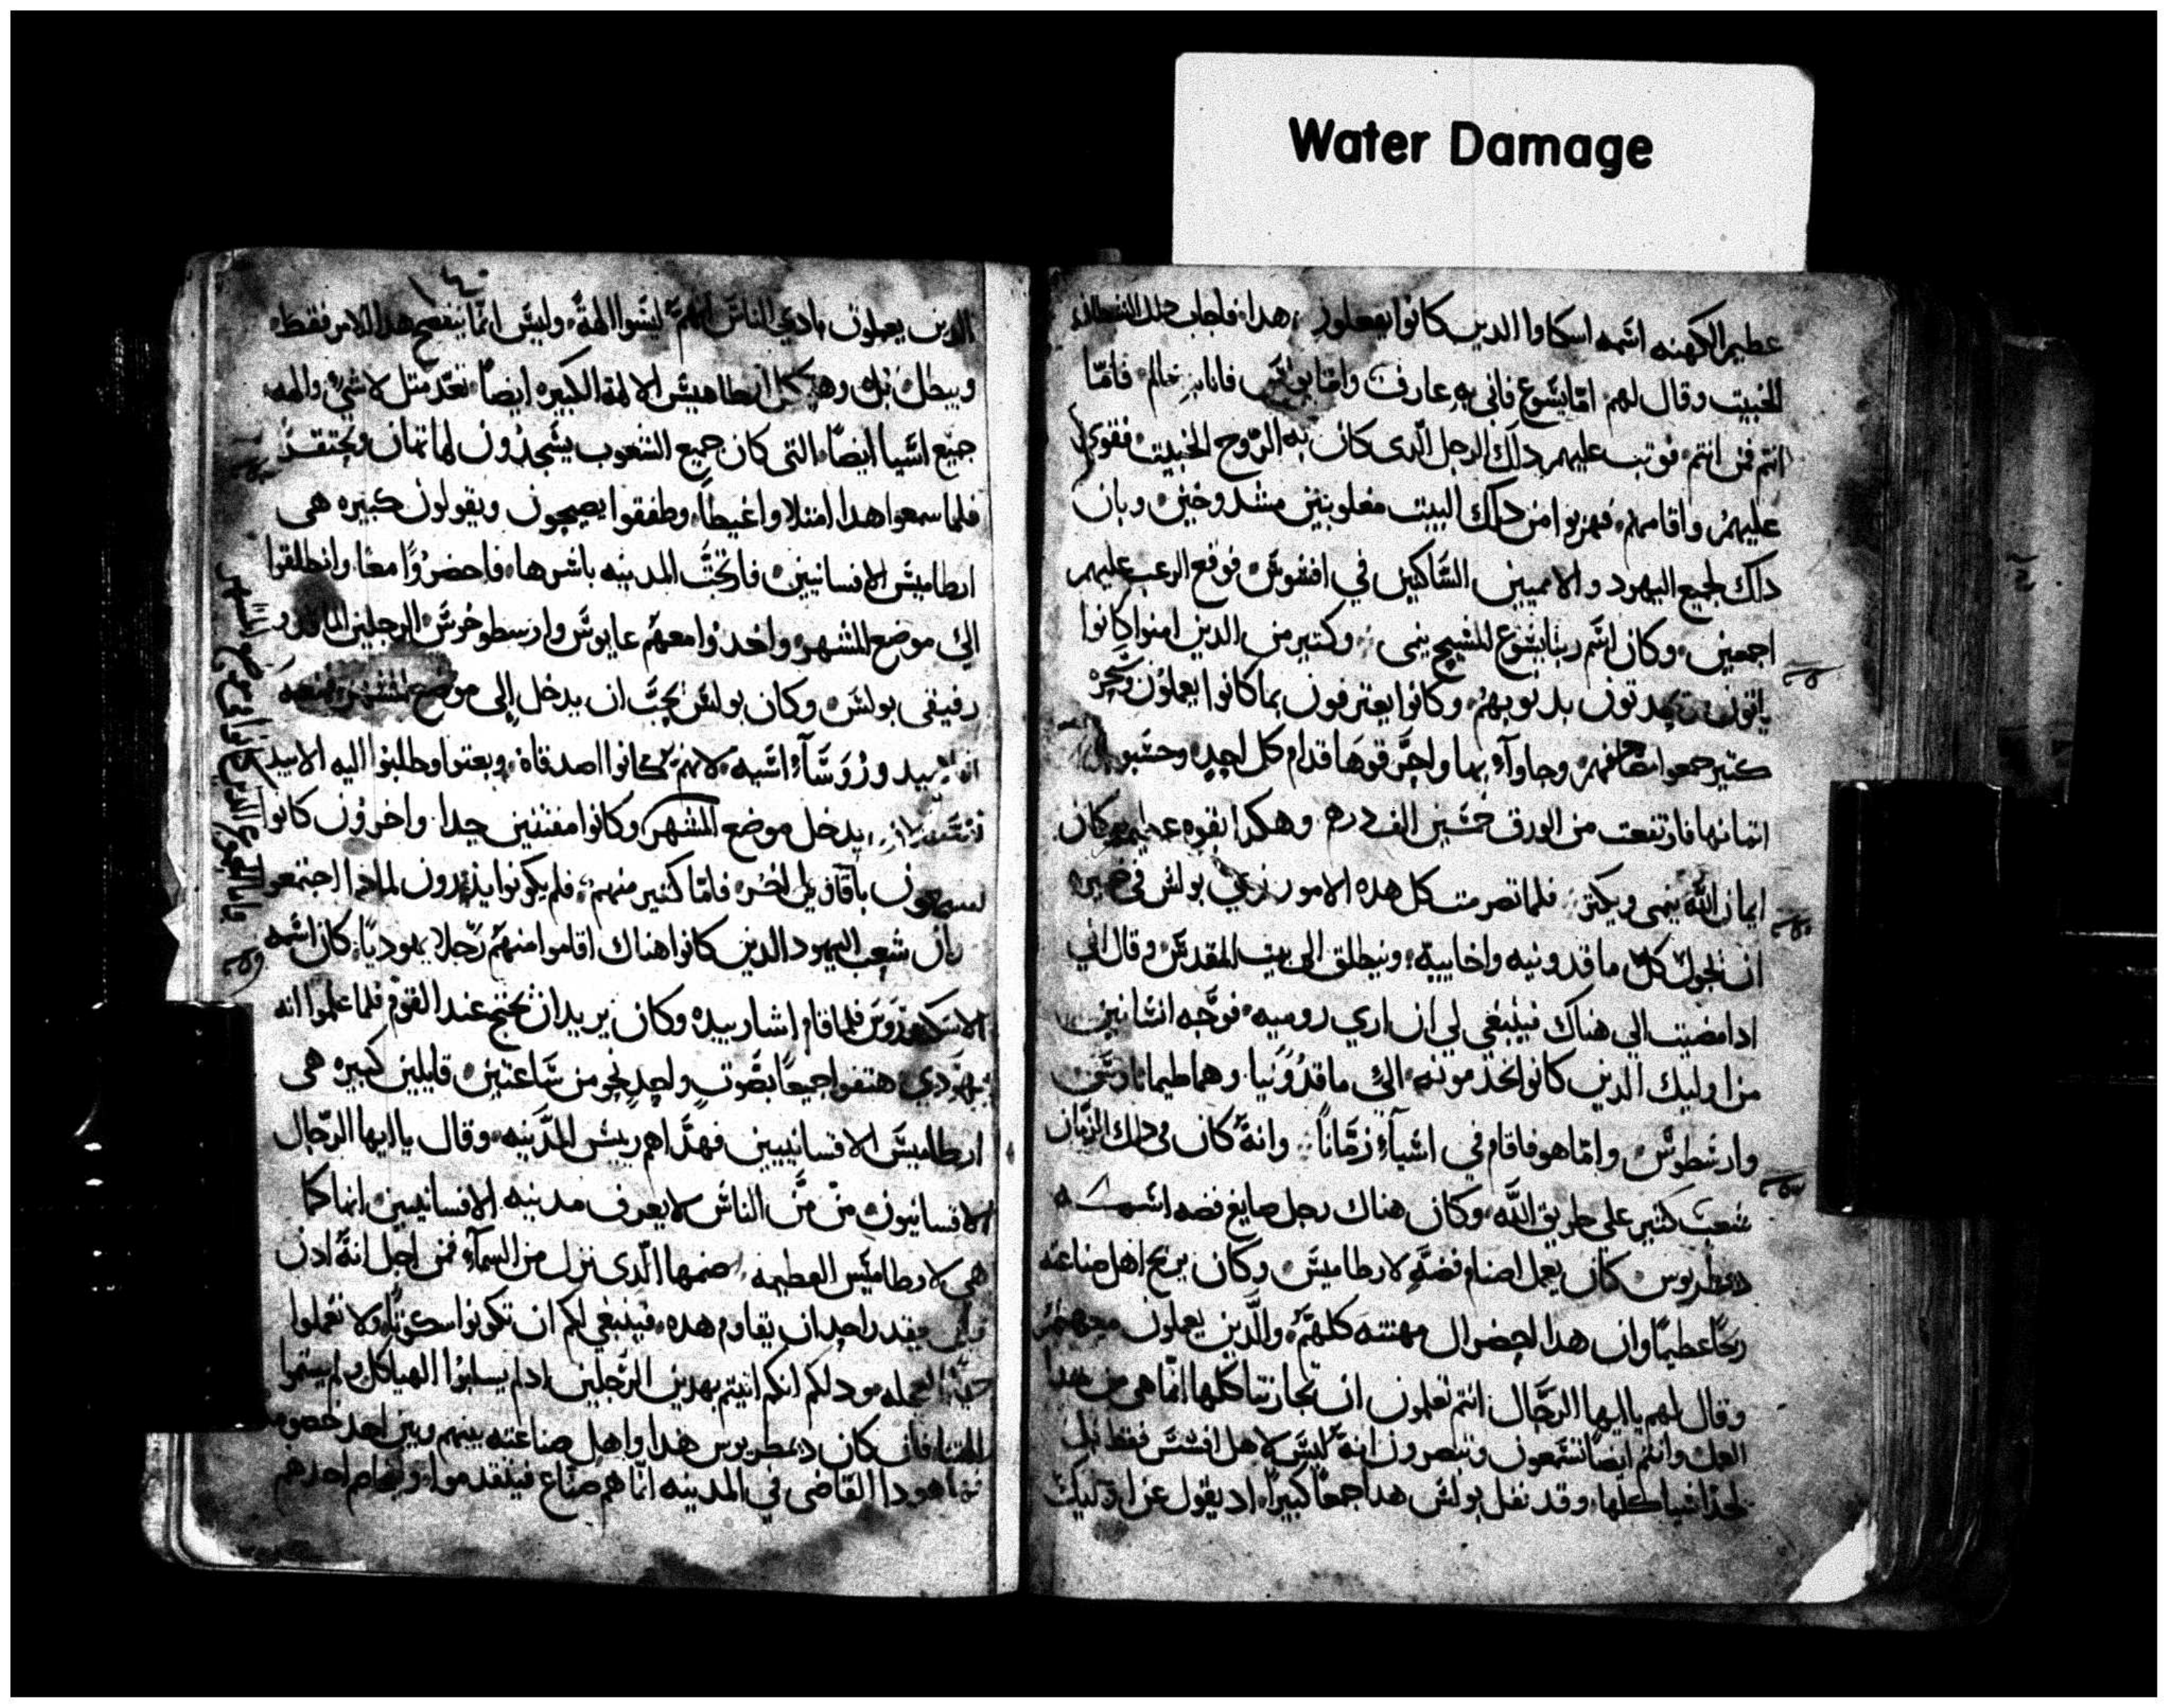 Water Damage
عظيم الكهنه اسمه اسكاوا الدين كانوا يفعلون هدا فاجاب دلك الشيطان
الخبيت وقال لهم اما يسوع فانى به عارف واما بولس فانا به عالم فامّا
انتم فمن انتم فوتب عليهم دلك الرجل الّدى كان به الروح الخبيت فقوي
عليهم واقامهم فهربوا من دلك البيت مغلوبين مشدوخين وبان
دلك لجميع اليهود والامميين السّاكنين في افسوس فوقع الرعب عليهم
اجمعين وكان اسم ربنا يسوع المسيح ينمى وكتير من الدين امنوا كانوا
ياتون يحدتون بدنوبهم وكانوا يعترفون بما كانوا يعملون وسحره
كتير جمعوا مصاحفهم وجاوآء بها واحرقوها قدام كل احد وحسبوا
اتمانها فارتفعت من الورق خمسين الف درهم وهكدا بقوه عظيمه كان
ايمان اللّه ينمى ويكتر فلما تصرمت كل هده الامور نوي بولس في ضميره
ان يجول كل ماقدونيه واخاييه وينطلق الى بيت المقدس وقال انى
ادا مضيت الي هناك فينبغي لي ان اري روميه فوجّه انسانين
من اوليك الدين كانوا يخدمونه الي ماقدونيا وهما طيماتاوس
وارسطوس وامّا هو فاقام في اسيآء زمانًا وانه كان في دلك الزمان
شعب كتير على طريق اللّه وكان هناك رجل صايغ فضه اسمه
دمطريوس كان يعمل اصنام فضه لارطاميس وكان يربح اهل صناعته
ربحًا عظيمًا وان هدا احضر ال مهنته كلهم والّدين يعملون معهم
وقال لهم يا ايها الرّجال انتم تعلمون ان تجارتنا كلها انّما هى من هدا
العمل وانتم ايضًا تسمعون وتبصرون انه ليس لاهل افسس فقط بل
لجل اسيا كلها وقد نفل بولس هدا جمعًا كبيرًا اد يقول عن اوليك
١٤
الدين يعملون بادي الناس انهم ليسوا الهة وليس انما يفضح هدا الامر فقط
ويبطل بل وهيكل ارطاميس الالهة الكبيره ايضا تعد متل لاشي والهه
جميع اسيا ايضًا التى كان جميع الشعوب يسجدون لها تهان وتحتقر
فلما سمعوا هدا امتلاوا غيظًا وطفقوا يصيحون ويقولون كبيره هى
ارطاميس الافسانيين فارتجّت المدينه باسرها فاحضروا معًا وانطلقوا
الي موضع المشهر واخدوا معهم غايوس وارسطوخوس الرجلين الماقدو
رفيقى بولس وكان بولس يحب ان يدخل إلى موضع المشهر فمنعه
التلاميد ورؤسآء اسيه لانهم كانوا اصدقاه وبعتوا وطلبوا اليه الا يبد
نفسه ان يدخل موضع المشهر وكانوا مفتنين جدا واخرون كانوا
يسمعون باقاويل اخر فامّا كتير منهم فلم يكونوا يدرون لمادا اجتمعوا
وان شعب اليهود الدين كانوا هناك اقاموا منهم رّجلا يهوديًا كان اسمه
الاسكندروس فلما قام اشار بيده وكان يريد ان يحتج عند القوم فلما علموا انه
يهودي هتفوا جميعًا بصوتٍ واحدٍ نحو من سّاعتين قايلين كبيره هى
ارطاميس الافسانيين فهدّاهم رييس المدينه وقال يا ايها الرّجال
الافسانيون من من الناس لا يعرف مدينه الافسانيين انها كما
هى لارطاميس العظيمه وصنمها الّدى نزل من السمآء فمن اجل انهُ ادن
ليس يقدر احد ان يقاوم هده فينبغي لكم ان تكونوا سكوتًا ولا تعملوا
العجله مود لكم انكم اتيتم بهدين الرّجلين اد لم يسلبوا الهياكل ولم يشتموا
الهتنا فان كان دمطريوس هدا واهل صناعته بينهم وبين احد خصومه
فها هودا القاضى في المدينه انّما هم صنّاع فيتقدموا ويخاصم احدهم